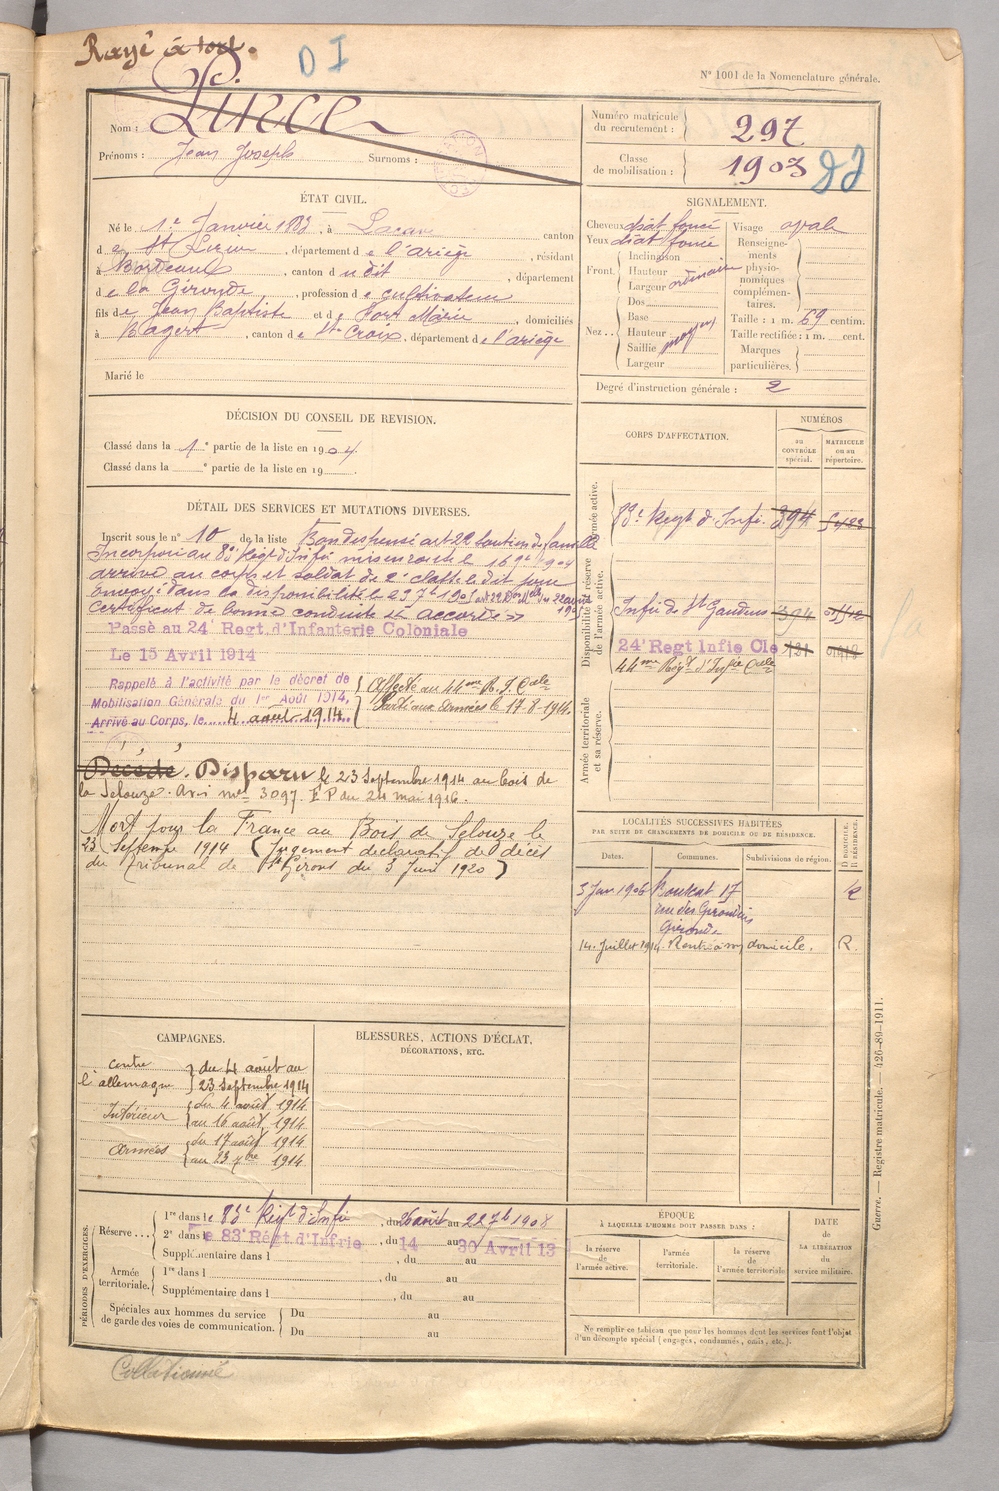 Rayé à tort.
D I
N° 1001 de la Nomenclature générale.
Nom :
Prénoms : Jean Joseph Surnoms :
Numéro matricule du recrutement : 297
Classe de mobilisation : 1903
ÉTAT CIVIL.
Né le 1er Janvier 1883, à Lacave canton
de St Lizier, département de l'ariège, résidant
à Bordeaux, canton du dit, département
de la Gironde, profession de cultivateur
fils de Jean Baptiste et de Fort Marie, domiciliés
à Bagert, canton de Ste Croix, département de l'ariège
Marié le
SIGNALEMENT.
Cheveux chat. foncé Visage ovale
Yeux chat foncé Renseignements physionomiques complémentaires.
Front. Inclinaison
Hauteur ordinaire
Largeur
Nez Dos
Base Taille : 1 m. 69 centim.
Hauteur moyen Taille rectifiée : 1 m. cent.
Saillie Marques particulières.
Largeur
Degré d'instruction générale : 2
DÉCISION DU CONSEIL DE REVISION.
Classé dans la 1e partie de la liste en 1904.
Classé dans la e partie de la liste en 19 .
DÉTAIL DES SERVICES ET MUTATIONS DIVERSES.
Inscrit sous le n° 10 de la liste Bon dispensé art 22 soutien de famille
Incorporé au 83e Régt d'Infie mis en route le 16 9bre 1904
arrivé au corps et soldat de 2e classe le dit jour
Envoyé dans la disponibilité le 23 7bre 1905
Certificat de bonne conduite "accordé"
Passé au 24e Regt. d'Infanterie Coloniale
Le 15 Avril 1914
Rappelé à l'activité par le décret de
Mobilisation Générale du 1er Août 1914,
Arrivé au Corps, le 4 août 1914.
Affecté au 44me R. I. Cale
Parti aux armées le 17-8-1914.
Décédé. Disparu le 23 Septembre 1914 au bois de
la Selouze. Avis mel 3097. E P du 24 mai 1916.
Mort pour la France au Bois de Selouze le
23 Septembre 1914 (Jugement déclaratif de décès
du Tribunal de St Girons du 3 Juin 1920)
CORPS D'AFFECTATION.
NUMÉROS
au CONTRÔLE spécial.
MATRICULE ou au répertoire.
Disponibilité et réserve de l'armée active.
83e Régt d'Infie 394
Infie de St Gaudens 394
24e Regt Infie Cle 121
44me Régt d'Infie Cale
Armée territoriale et sa réserve.
LOCALITÉS SUCCESSIVES HABITÉES
PAR SUITE DE CHANGEMENTS DE DOMICILE OU DE RÉSIDENCE.
D. DOMICILE. R. RÉSIDENCE.
Dates. Communes. Subdivisions de région.
3 Jan 1906 Bouscat 17 R
rue des Girondins
Gironde
14 Juillet 1914. Rentré à son domicile. R.
CAMPAGNES.
contre l'allemagne du 4 août au
23 Septembre 1914
Intérieur du 4 août 1914
au 16 août 1914
Armées du 17 août 1914
au 23 7bre 1914
BLESSURES, ACTIONS D'ÉCLAT,
DÉCORATIONS, ETC.
PÉRIODES D'EXERCICES.
Réserve 1re dans le 83e Régt d'Infie, du 26 août au 22 7b 1908
2e dans le 83e Régt. d'Infrie, du 14 au 30 Avril 13
Supplémentaire dans l , du au
Armée territoriale. 1re dans l , du au
Supplémentaire dans l , du au
Spéciales aux hommes du service de garde des voies de communication. Du au
Du au
ÉPOQUE
À LAQUELLE L'HOMME DOIT PASSER DANS :
la réserve de l'armée active.
l'armée territoriale.
la réserve de l'armée territoriale
DATE
DE LA LIBÉRATION
du service militaire.
Ne remplir ce tableau que pour les hommes dont les services font l'objet
d'un décompte spécial (engagés, condamnés, omis, etc.).
Guerre. — Registre matricule. — 426-89-1911.
Collationné